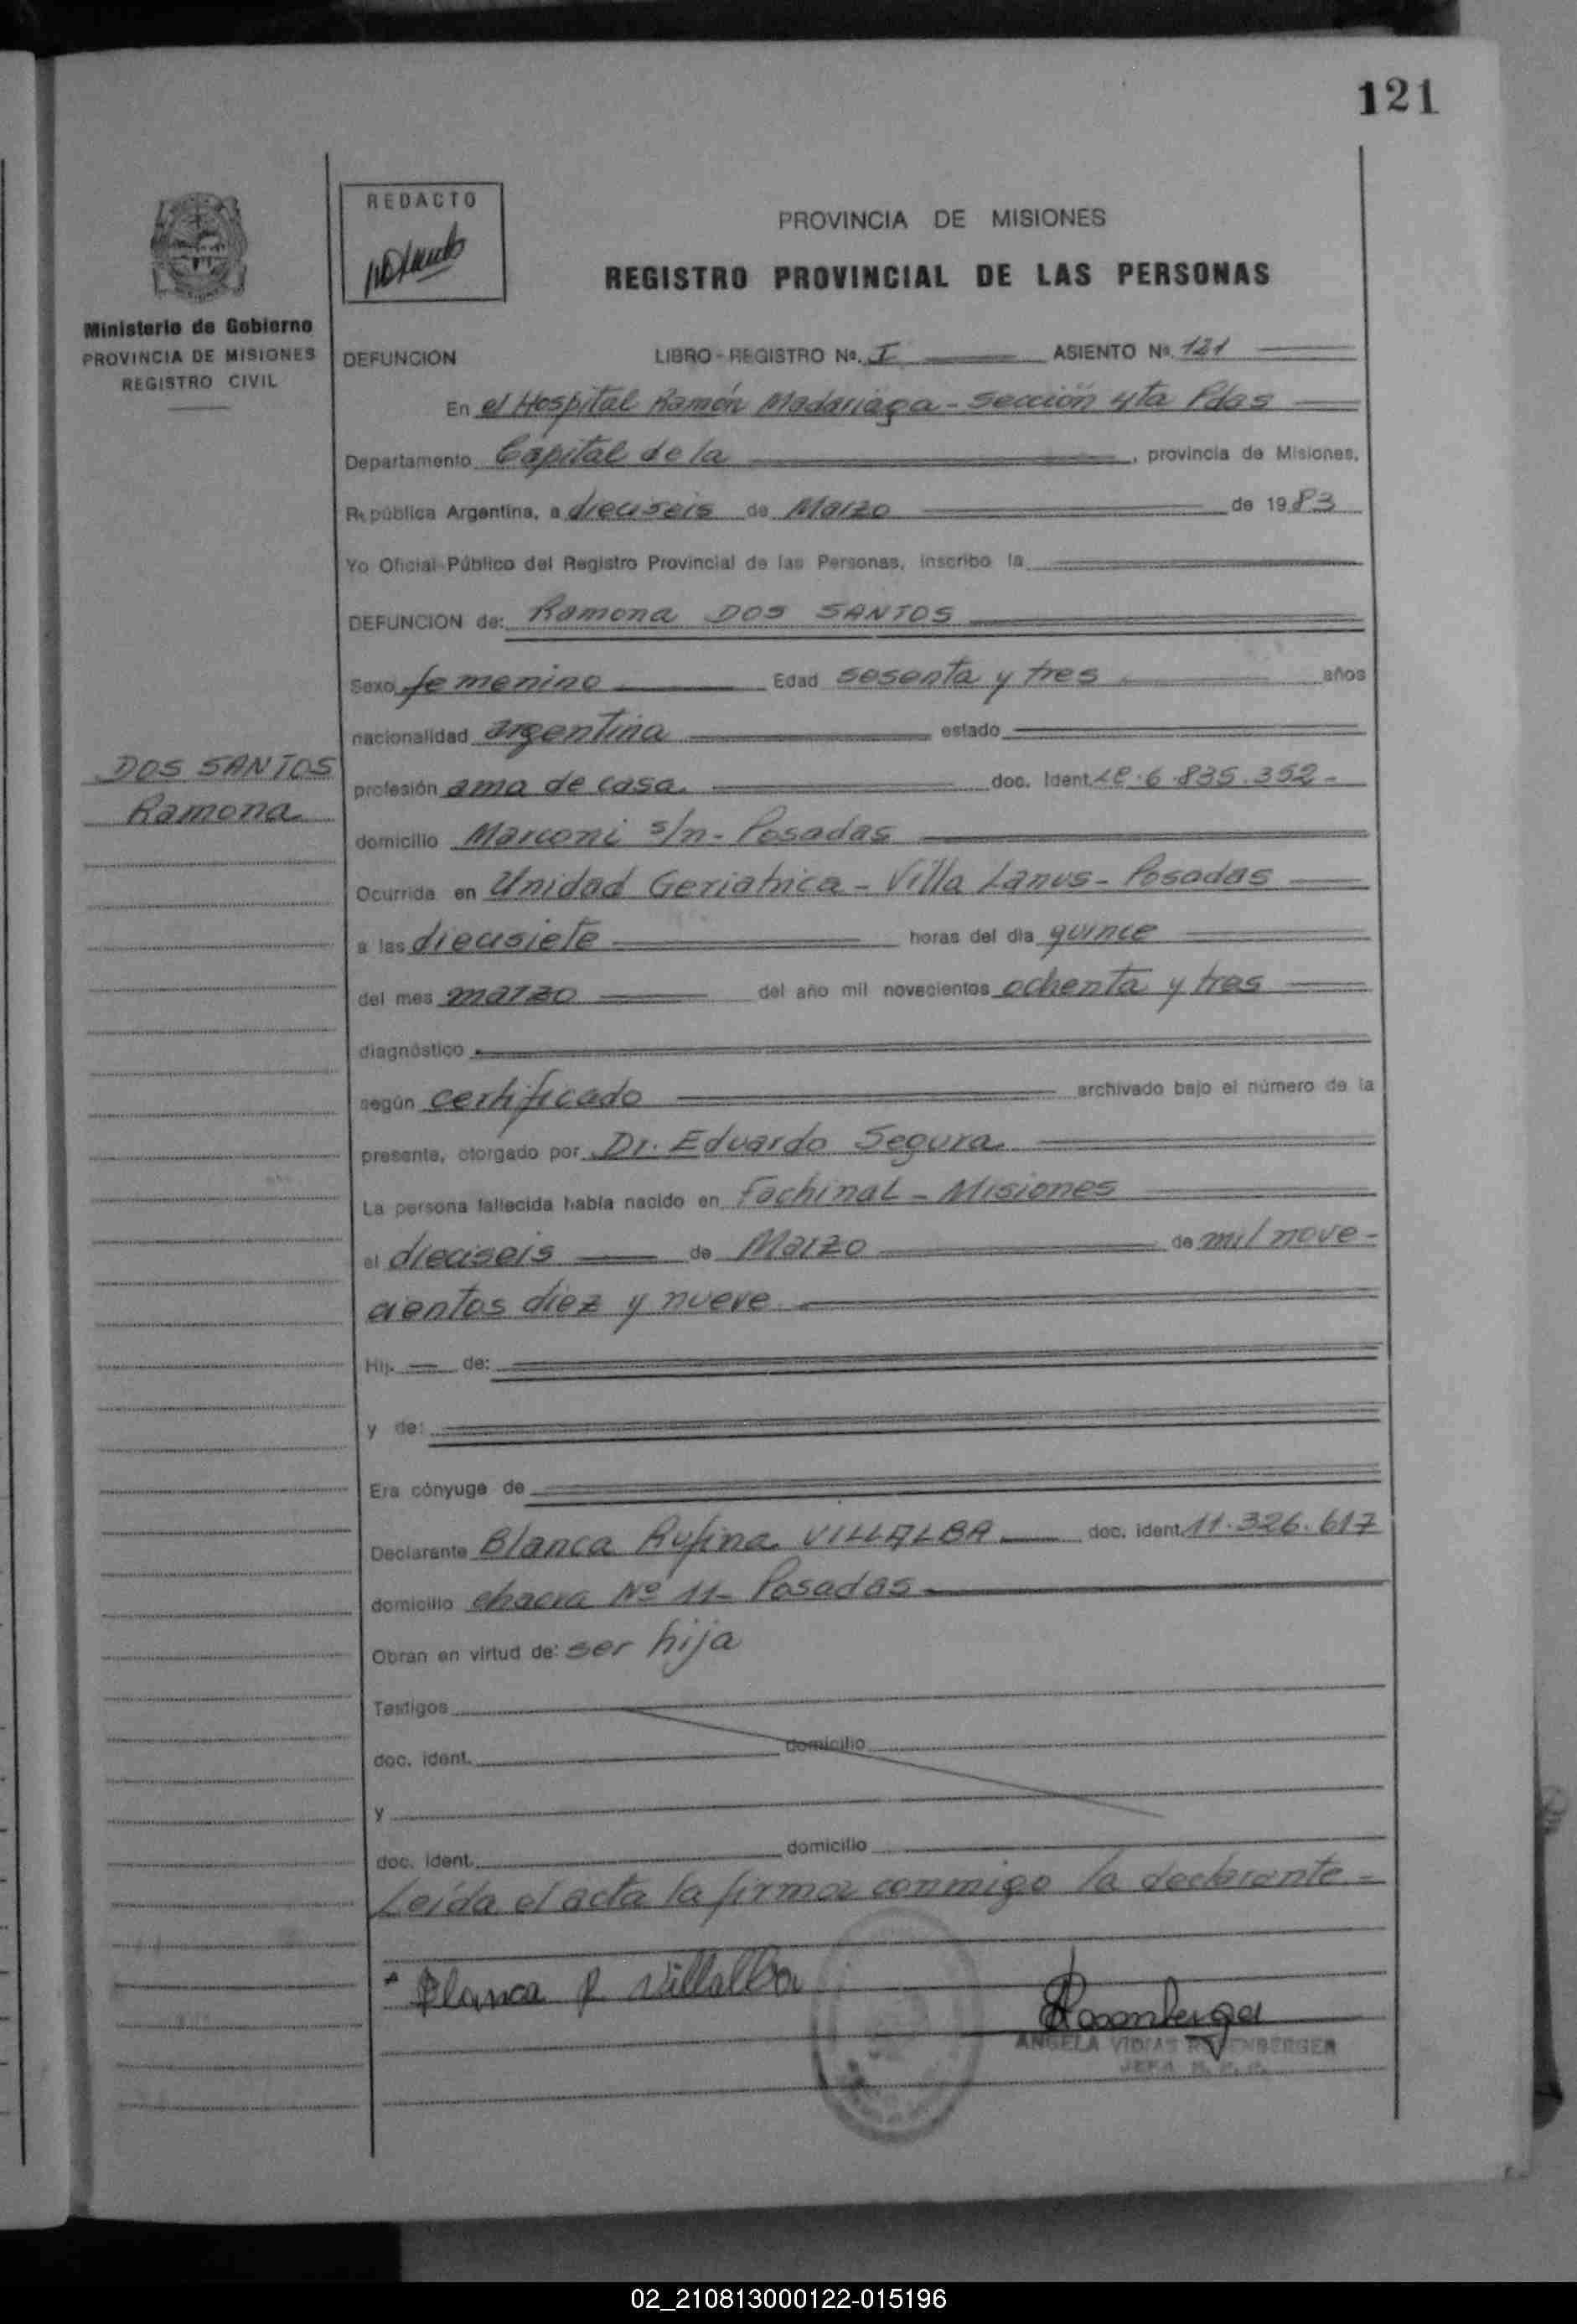 121
REDACTO
PROVINCIA DE MISIONES
REGISTRO PROVINCIAL DE LAS PERSONAS
Ministerio de Gobierno
PROVINCIA DE MISIONES
REGISTRO CIVIL
DEFUNCION LIBRO-REGISTRO Nº. I ASIENTO Nº. 121
En el Hospital Ramón Madariaga - Sección 4ta Pdas
Departamento Capital de la , provincia de Misiones,
República Argentina, a dieciseis de Marzo de 1983
Yo Oficial Público del Registro Provincial de las Personas, inscribo la
DEFUNCION de: Ramona DOS SANTOS
Sexo femenino Edad sesenta y tres años
nacionalidad argentina estado
DOS SANTOS
Ramona
profesión ama de casa. doc. Ident. LC. 6.835.352-
domicilio Marconi s/n - Posadas
Ocurrida en Unidad Geriatrica - Villa Lanus - Posadas
a las diecisiete horas del día quince
del mes marzo del año mil novecientos ochenta y tres
diagnóstico
según certificado archivado bajo el número de la
presente, otorgado por Dr. Eduardo Segura
La persona fallecida había nacido en Fachinal - Misiones
el dieciseis de Marzo de mil nove-
cientos diez y nueve
Hij. de:
y de:
Era cónyuge de
Declarante Blanca Rufina VILLALBA doc. ident. 11.326.617
domicilio chacra Nº 11 - Posadas
Obran en virtud de: ser hija
Testigos
doc. ident. domicilio
y
doc. ident. domicilio
Leída el acta la firma conmigo la declarante -
Blanca R Villalba
Rosenberger
ANGELA VIDIAS ROSENBERGER
JEFA
02_210813000122-015196